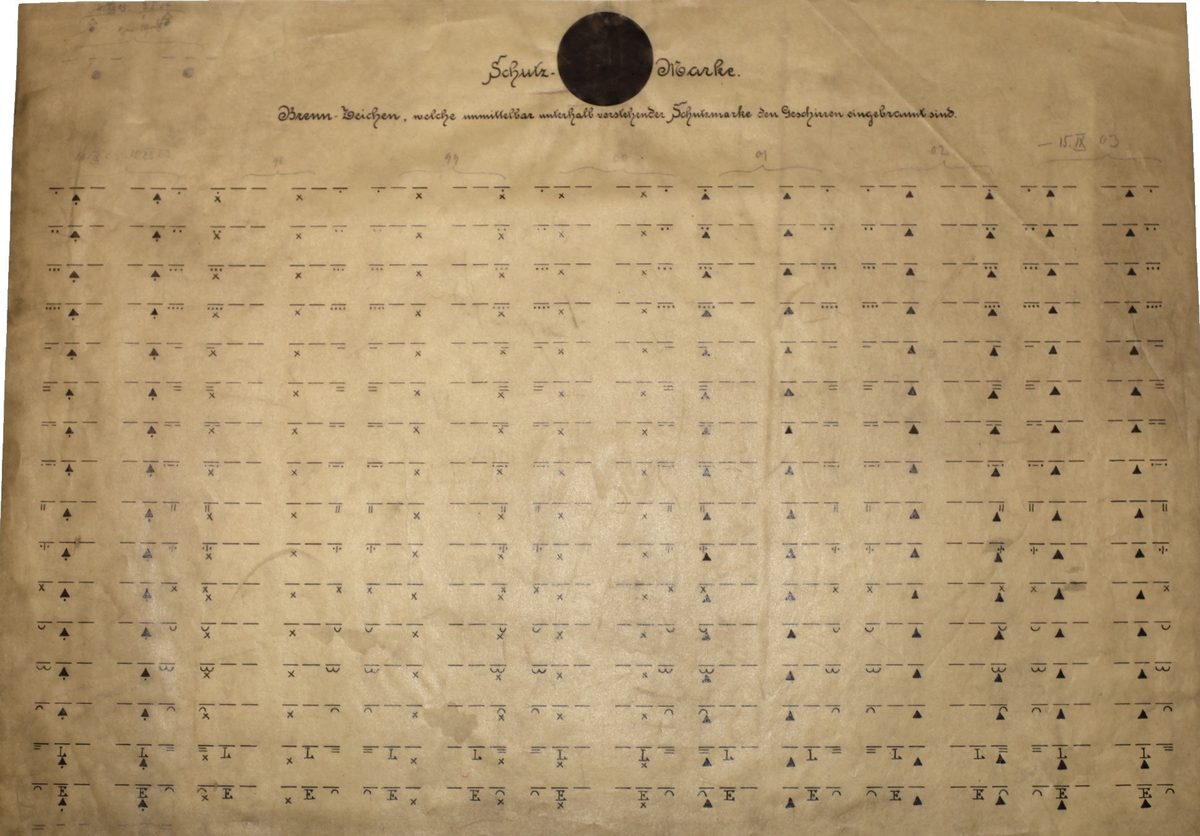 Schutz- Marke.
Brenn-Zeichen, welche unmittelbar unterhalb vorstehender Schutzmarke den Geschirren eingebrannt sind.
98 99 00 01 02 – 15. IX 03
T T T T T T T T T T T T T T
E E E E E E E E E E E E E E